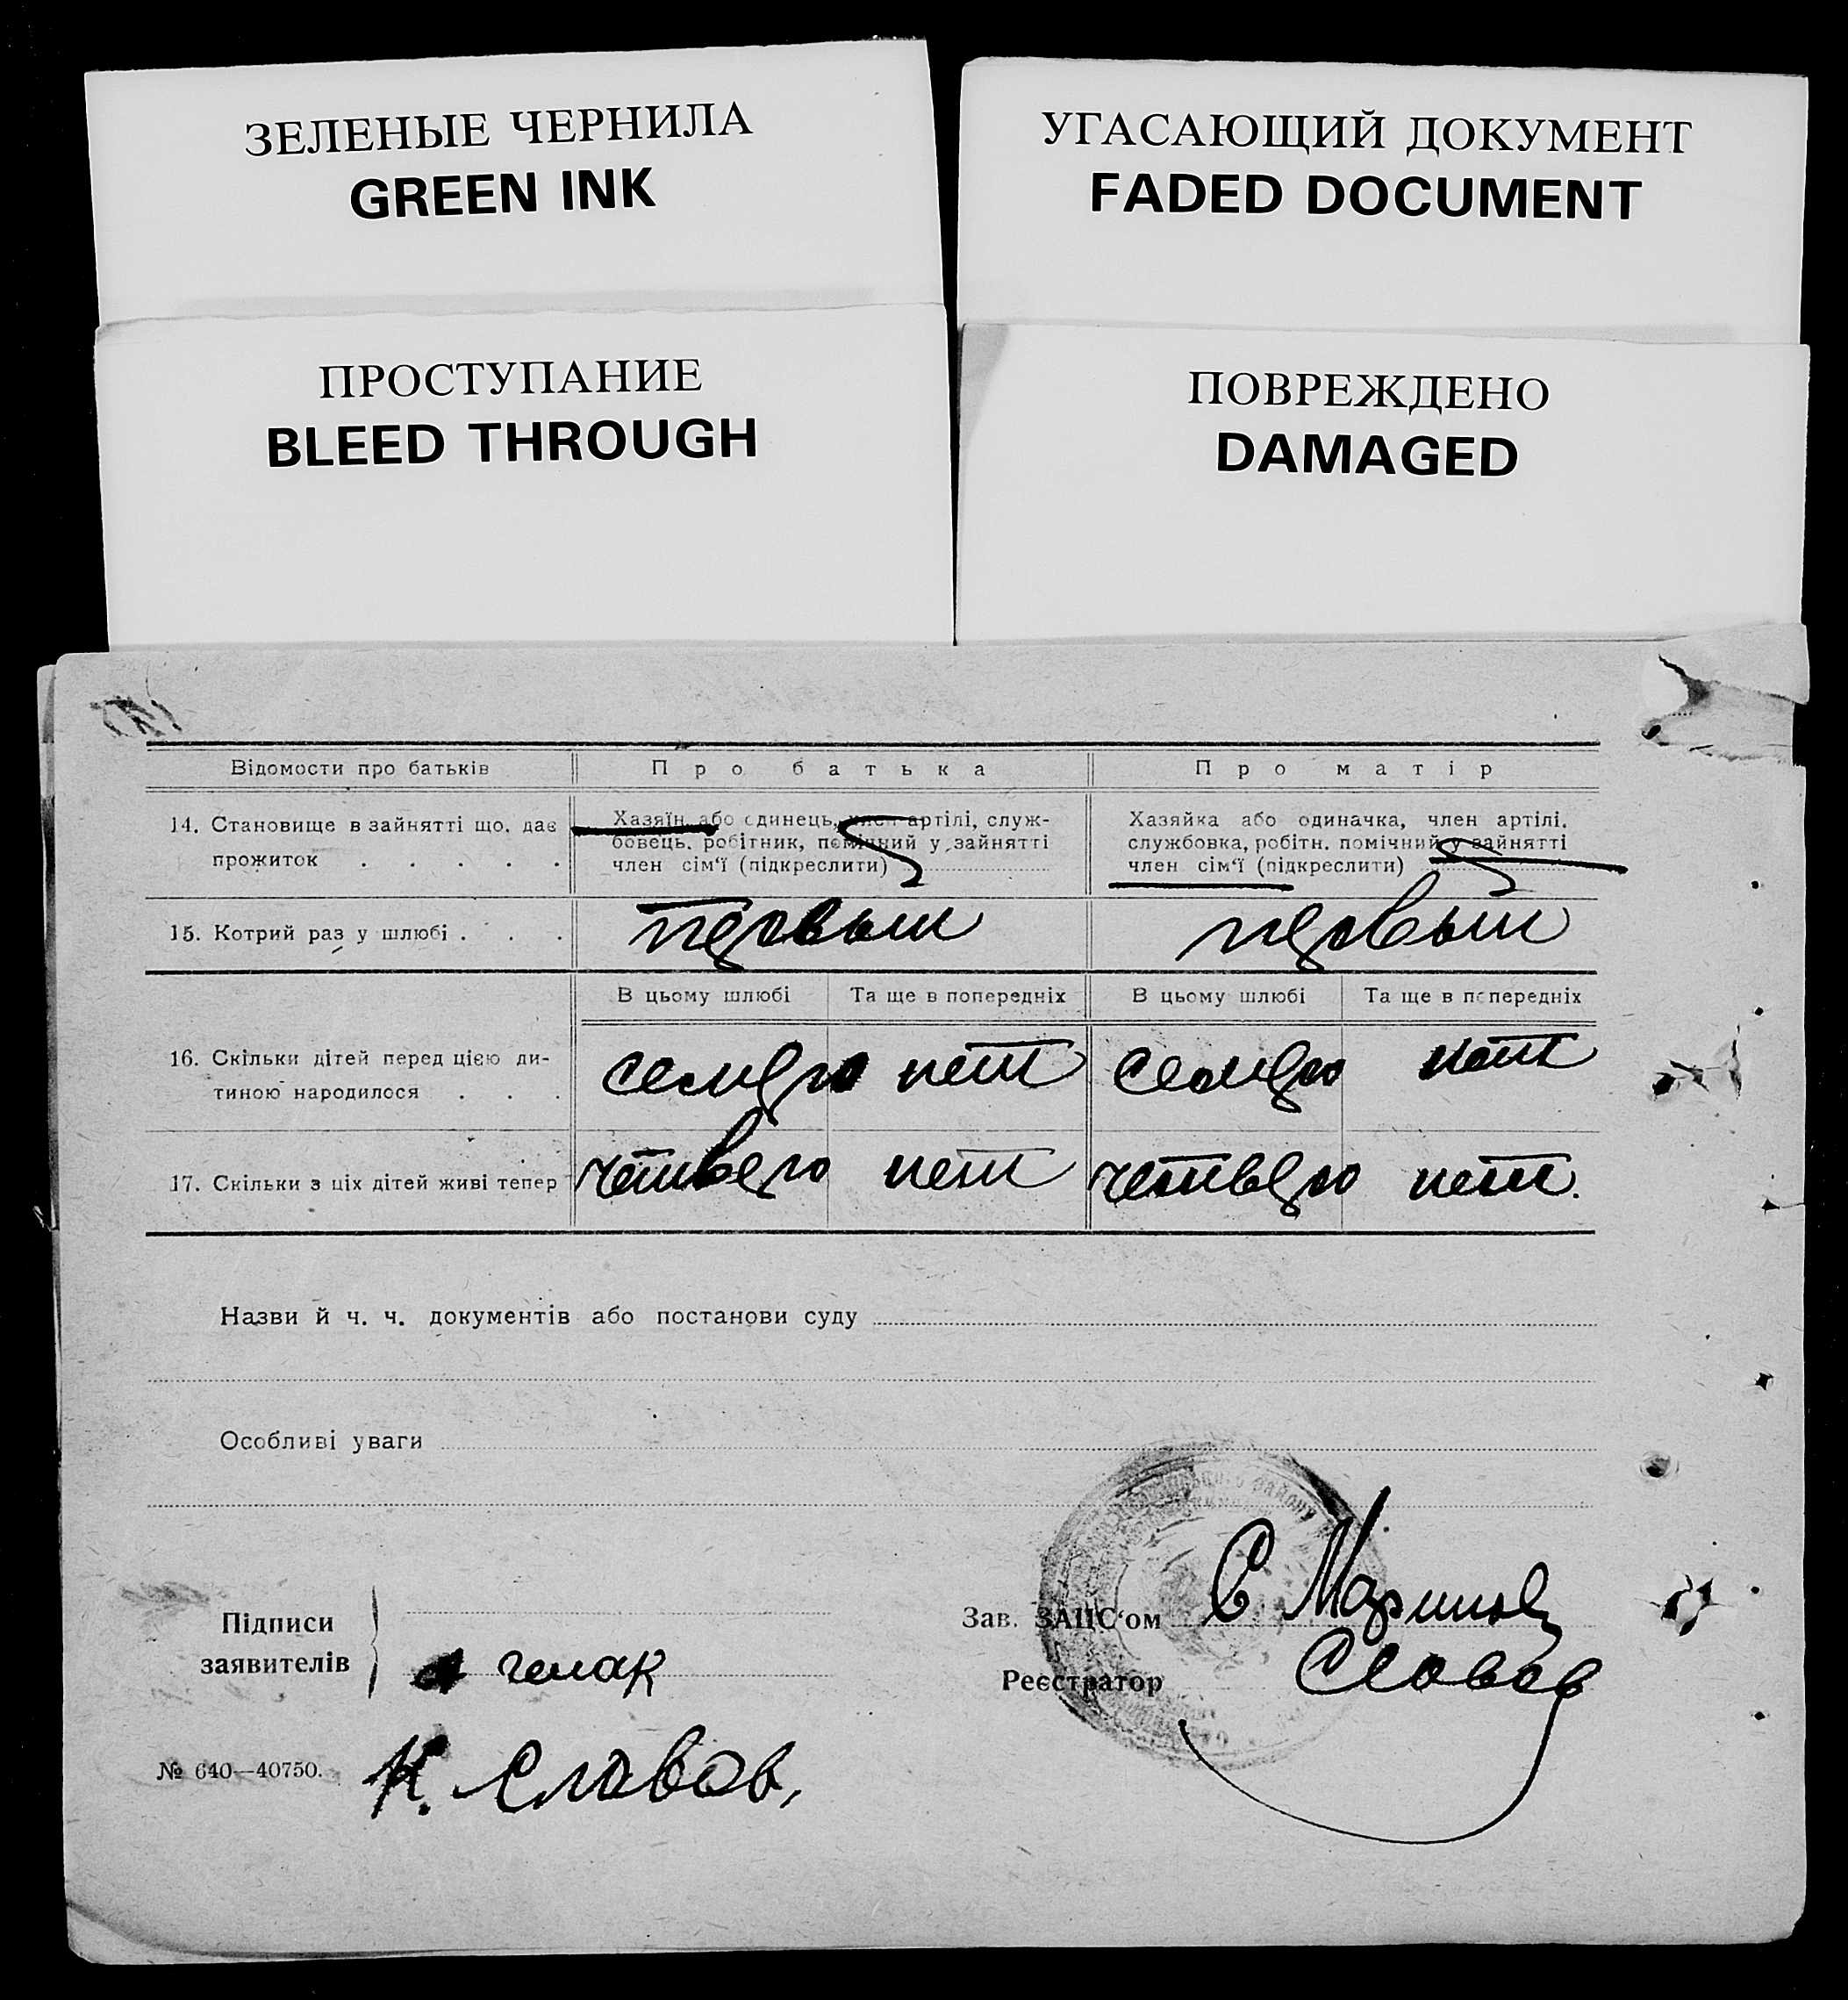 ЗЕЛЕНЫЕ ЧЕРНИЛА
GREEN INK
УГАСАЮЩИЙ ДОКУМЕНТ
FADED DOCUMENT
ПРОСТУПАНИЕ
BLEED THROUGH
ПОВРЕЖДЕНО
DAMAGED
Відомости про батьків Про батька Про матір
14. Становище в зайнятті що, дає
прожиток . . . . .
Хазяїн або єдинець, член артілі, служ-
бовець, робітник, помічний у зайнятті
член сім'ї (підкреслити)
Хазяйка або одиначка, член артілі,
службовка, робітн. помічний у зайнятті
член сім'ї (підкреслити)
15. Котрий раз у шлюбі . . . первый первый
В цьому шлюбі Та ще в попередніх В цьому шлюбі Та ще в попередніх
16. Скільки дітей перед цією ди-
тиною народилося . . .
семеро нет семеро нет
17. Скільки з ціх дітей живі тепер четверо нет четверо нет.
Назви й ч. ч. документів або постанови суду
Особливі уваги
району
Підписи
заявителів
К. Славов,
Зав. ЗАЦС'ом С
Реєстратор Славов
№ 640—40750.